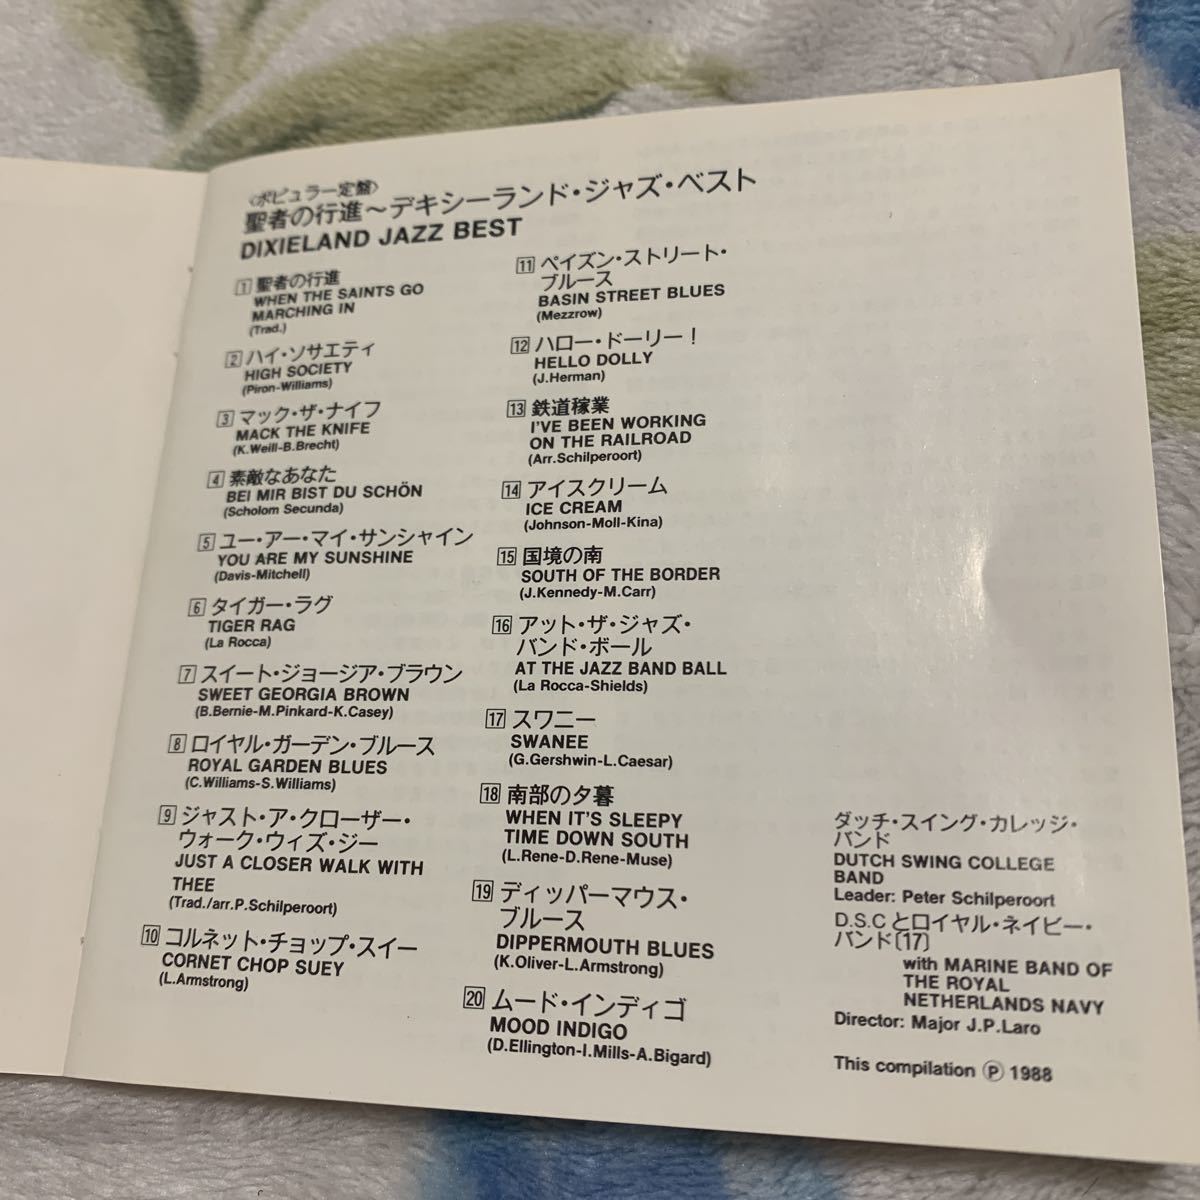 〈ポピュラー定盤〉
聖者の行進～デキシーランド・ジャズ・ベスト
DIXIELAND JAZZ BEST
1 聖者の行進
WHEN THE SAINTS GO
MARCHING IN
(Trad.)
2 ハイ・ソサエティ
HIGH SOCIETY
(Piron-Williams)
3 マック・ザ・ナイフ
MACK THE KNIFE
(K.Weill-B.Brecht)
4 素敵なあなた
BEI MIR BIST DU SCHÖN
(Scholom Secunda)
5 ユー・アー・マイ・サンシャイン
YOU ARE MY SUNSHINE
(Davis-Mitchell)
6 タイガー・ラグ
TIGER RAG
(La Rocca)
7 スイート・ジョージア・ブラウン
SWEET GEORGIA BROWN
(B.Bernie-M.Pinkard-K.Casey)
8 ロイヤル・ガーデン・ブルース
ROYAL GARDEN BLUES
(C.Williams-S.Williams)
9 ジャスト・ア・クローザー・
ウォーク・ウィズ・ジー
JUST A CLOSER WALK WITH
THEE
(Trad./arr.P.Schilperoort)
10 コルネット・チョップ・スイー
CORNET CHOP SUEY
(L.Armstrong)
11 ベイズン・ストリート・
ブルース
BASIN STREET BLUES
(Mezzrow)
12 ハロー・ドーリー！
HELLO DOLLY
(J.Herman)
13 鉄道稼業
I'VE BEEN WORKING
ON THE RAILROAD
(Arr.Schilperoort)
14 アイスクリーム
ICE CREAM
(Johnson-Moll-Kina)
15 国境の南
SOUTH OF THE BORDER
(J.Kennedy-M.Carr)
16 アット・ザ・ジャズ・
バンド・ボール
AT THE JAZZ BAND BALL
(La Rocca-Shields)
17 スワニー
SWANEE
(G.Gershwin-L.Caesar)
18 南部の夕暮
WHEN IT'S SLEEPY
TIME DOWN SOUTH
(L.Rene-D.Rene-Muse)
19 ディッパーマウス・
ブルース
DIPPERMOUTH BLUES
(K.Oliver-L.Armstrong)
20 ムード・インディゴ
MOOD INDIGO
(D.Ellington-I.Mills-A.Bigard)
ダッチ・スイング・カレッジ・
バンド
DUTCH SWING COLLEGE
BAND
Leader: Peter Schilperoort
D.S.Cとロイヤル・ネイビー・
バンド〔17〕
with MARINE BAND OF
THE ROYAL
NETHERLANDS NAVY
Director: Major J.P.Laro
This compilation Ⓟ 1988